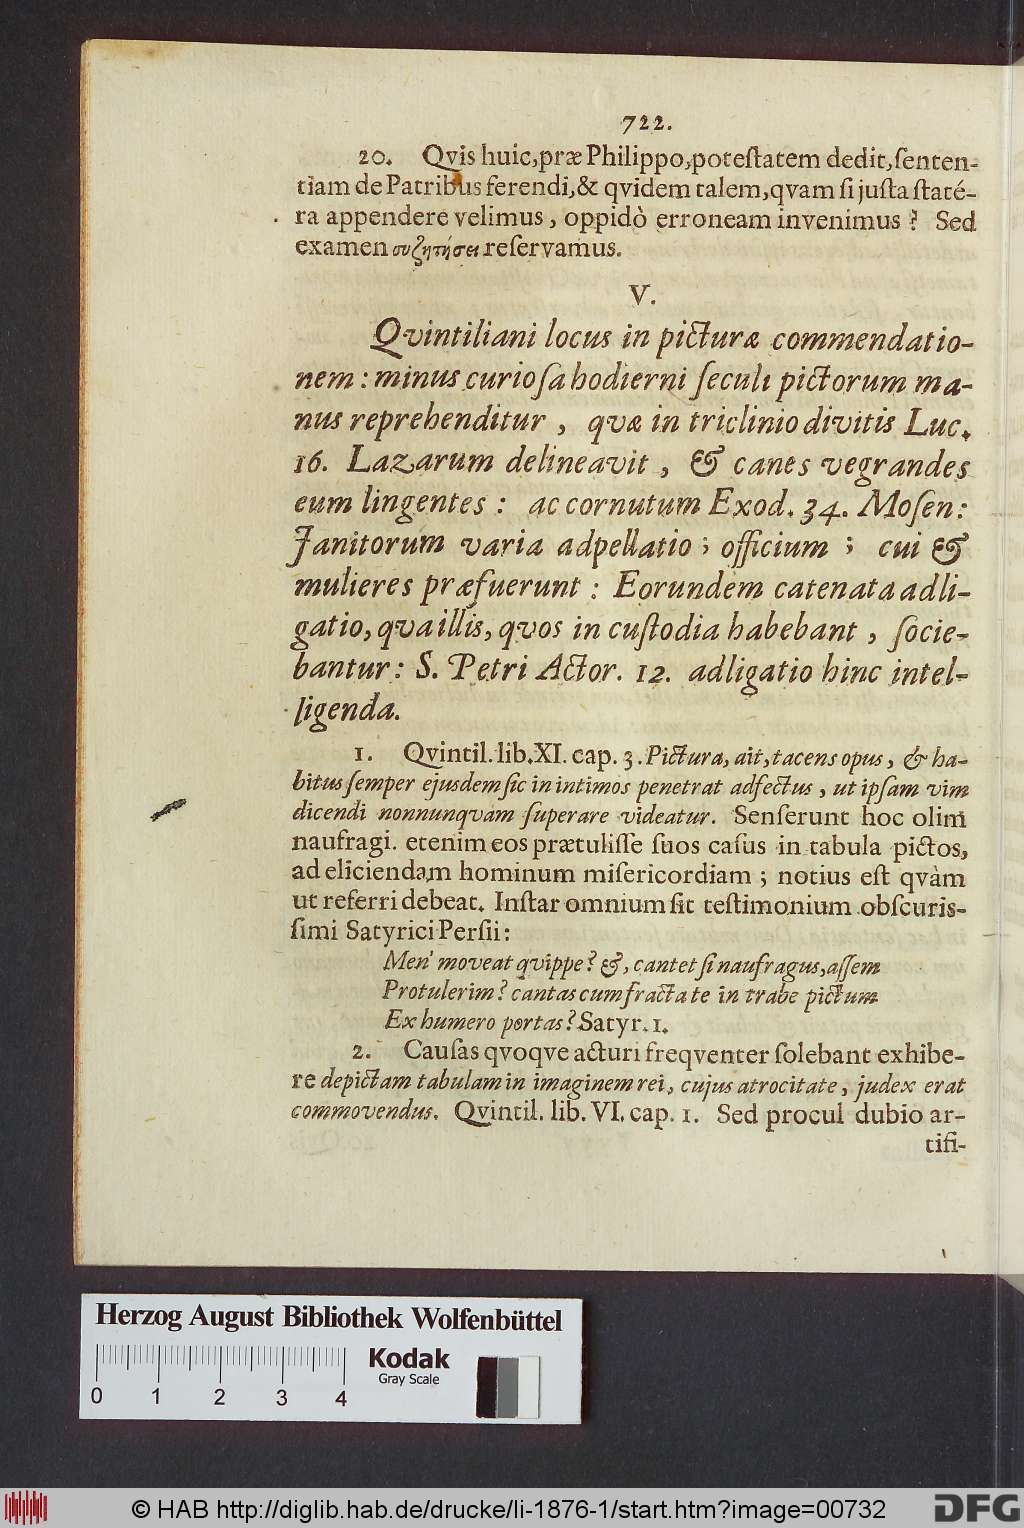 722.
20. Qvis huic, præ Philippo, potestatem dedit, senten-
tiam de Patribus ferendi, & qvidem talem, qvam si justa staté-
ra appendere velimus, oppidò erroneam invenimus? Sed
examen συζητήσει reservamus.
V.
Qvintiliani locus in picturæ commendatio-
nem: minus curiosa hodierni seculi pictorum ma-
nus reprehenditur, qvæ in triclinio divitis Luc.
16. Lazarum delineavit, & canes vegrandes
eum lingentes: ac cornutum Exod. 34. Mosen:
Janitorum varia adpellatio; officium; cui &
mulieres præfuerunt: Eorundem catenata adli-
gatio, qva illis, qvos in custodia habebant, socie-
bantur: S. Petri Actor. 12. adligatio hinc intel-
ligenda.
1. Qvintil. lib. XI. cap. 3. Pictura, ait, tacens opus, & ha-
bitus semper ejusdem sic in intimos penetrat adfectus, ut ipsam vim
dicendi nonnunqvam superare videatur. Senserunt hoc olim
naufragi. etenim eos prætulisse suos casus in tabula pictos,
ad eliciendam hominum misericordiam; notius est qvàm
ut referri debeat. Instar omnium sit testimonium obscuris-
simi Satyrici Persii:
Men' moveat qvippe? &, cantet si naufragus, assem
Protulerim? cantas cum fracta te in trabe pictum
Ex humero portas? Satyr. 1.
2. Causas qvoqve acturi freqventer solebant exhibe-
re depictam tabulam in imaginem rei, cujus atrocitate, judex erat
commovendus. Qvintil. lib. VI. cap. 1. Sed procul dubio ar-
tifi-
Herzog August Bibliothek Wolfenbüttel
Kodak
Gray Scale
0 1 2 3 4
© HAB http://diglib.hab.de/drucke/li-1876-1/start.htm?image=00732
DFG